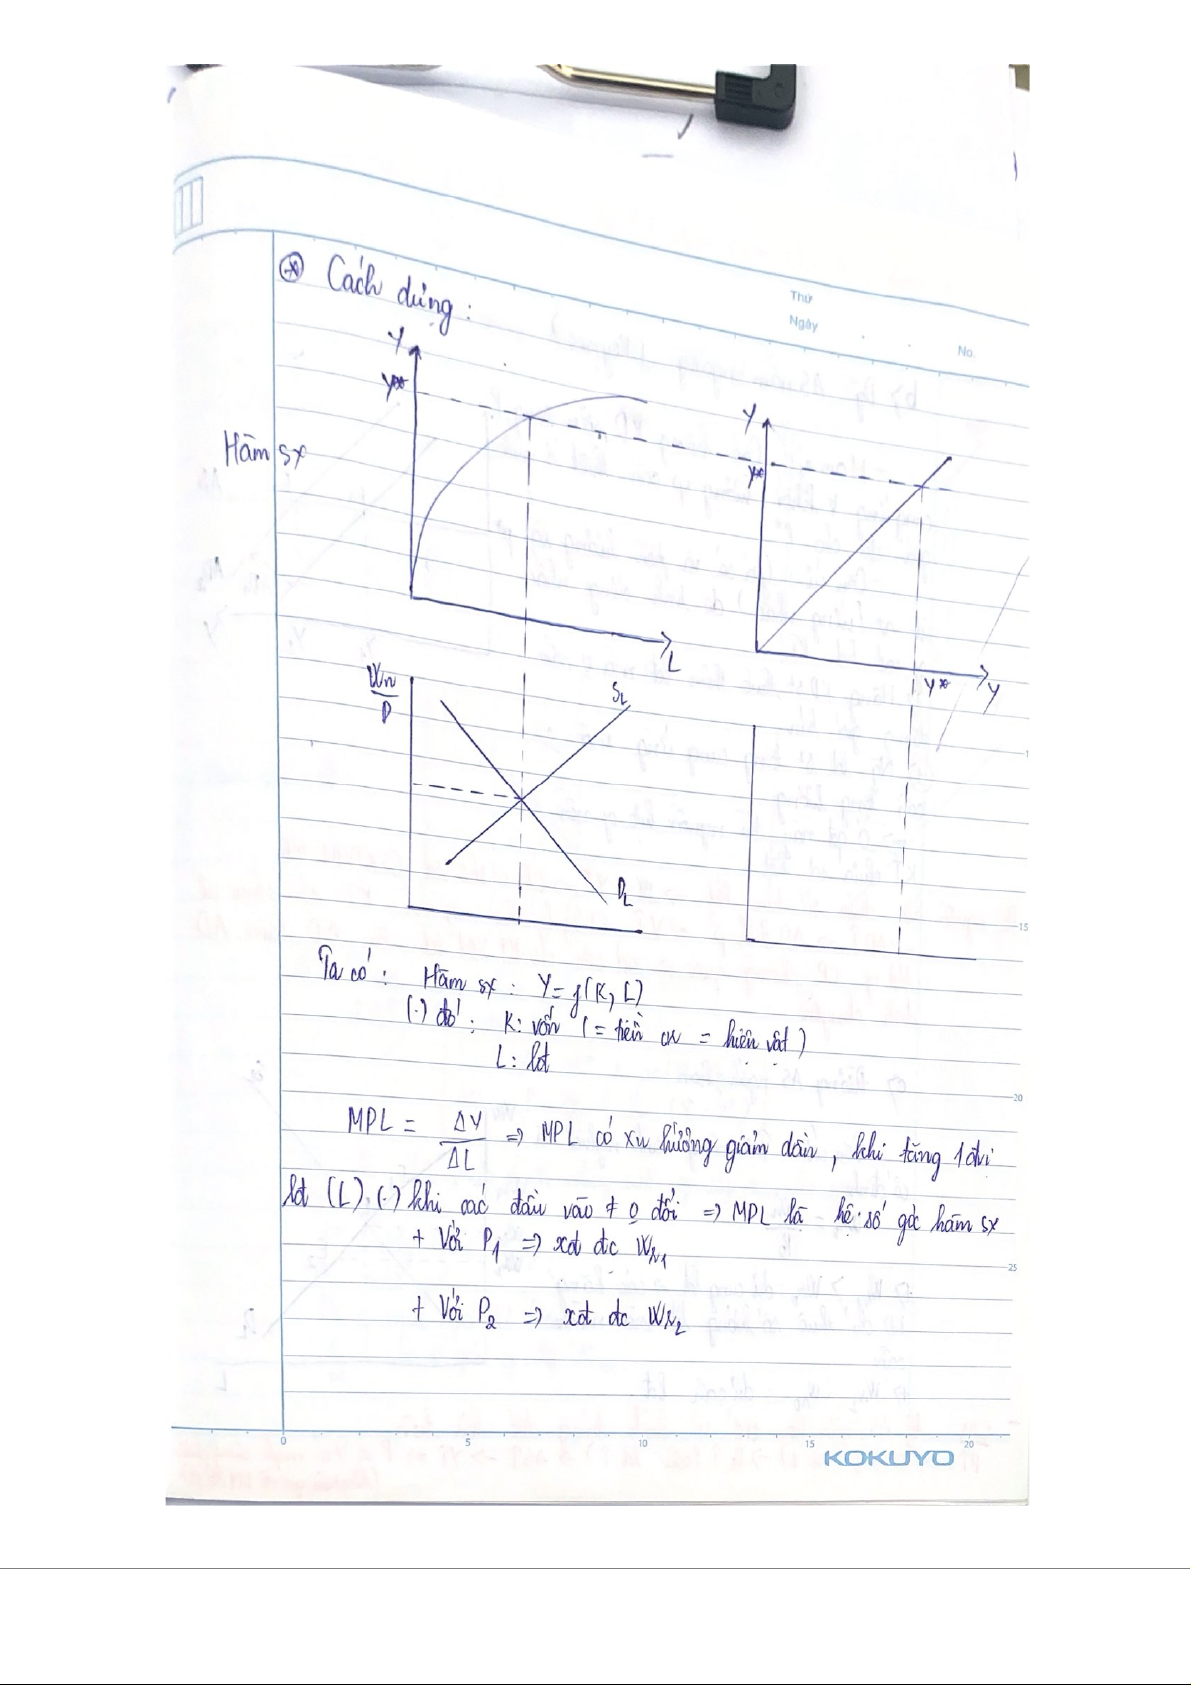 Thứ
Ngày
No.
⊛ Cách dựng :
Y
Y*
Hàm sx
L
Y
Y*
Y*
Y
Wn
P
SL
DL
Ta có : Hàm sx : Y = f(K, L)
(·) đó : K: vốn ( = tiền or = hiện vật )
L: lđ
MPL = ΔY/ΔL => MPL có xu hướng giảm dần, khi tăng 1 đvi
lđ (L) (·) khi các đầu vào ≠ o đổi => MPL là hệ số góc hàm sx
+ Với P1 => xđ đc WN1
+ Với P2 => xđ đc WN2
15
20
25
0 5 10 15 20
KOKUYO